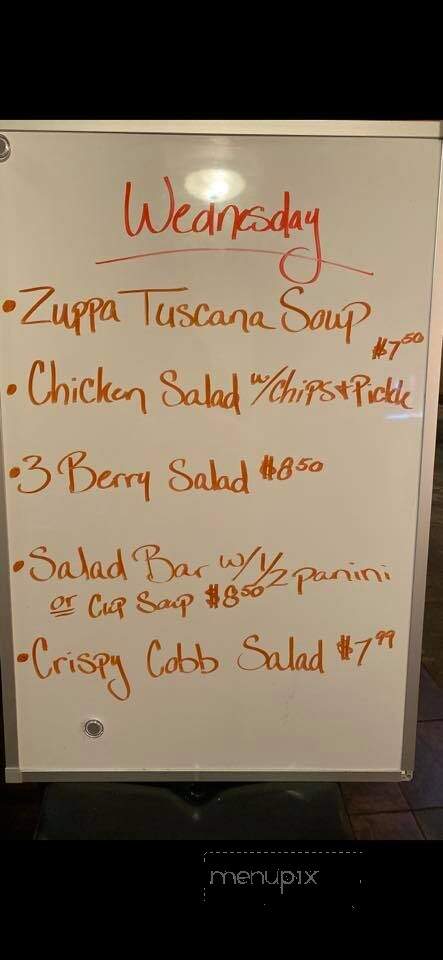 Wednesday
• Zuppa Tuscana Soup
$7.50
• Chicken Salad w/chips+Pickle
• 3 Berry Salad $8.50
• Salad Bar w/ 1/2 panini
or Cup Soup $8.50
• Crispy Cobb Salad $7.99
menupix